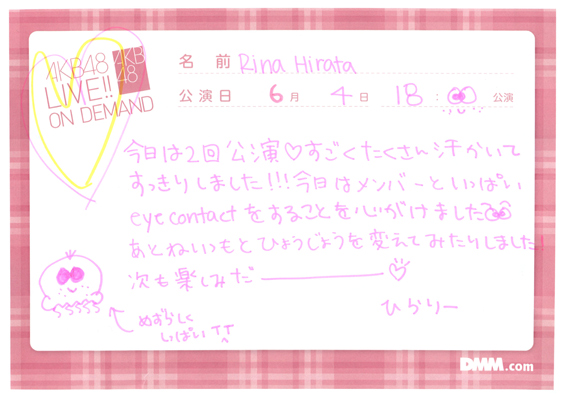 AKB48
LIVE!!
ON DEMAND
AKB
48
名前 Rina Hirata
公演日 6月 4日 18: 公演
今日は2回公演♡すごくたくさん汗かいて
すっきりしました!!!今日はメンバーといっぱい
eye contactをすることを心がけました
あとねいつもとひょうじょうを変えてみたりしました!
次も楽しみだ――――♡
ひらりー
めずらしく
いっぱいTT
DMM.com